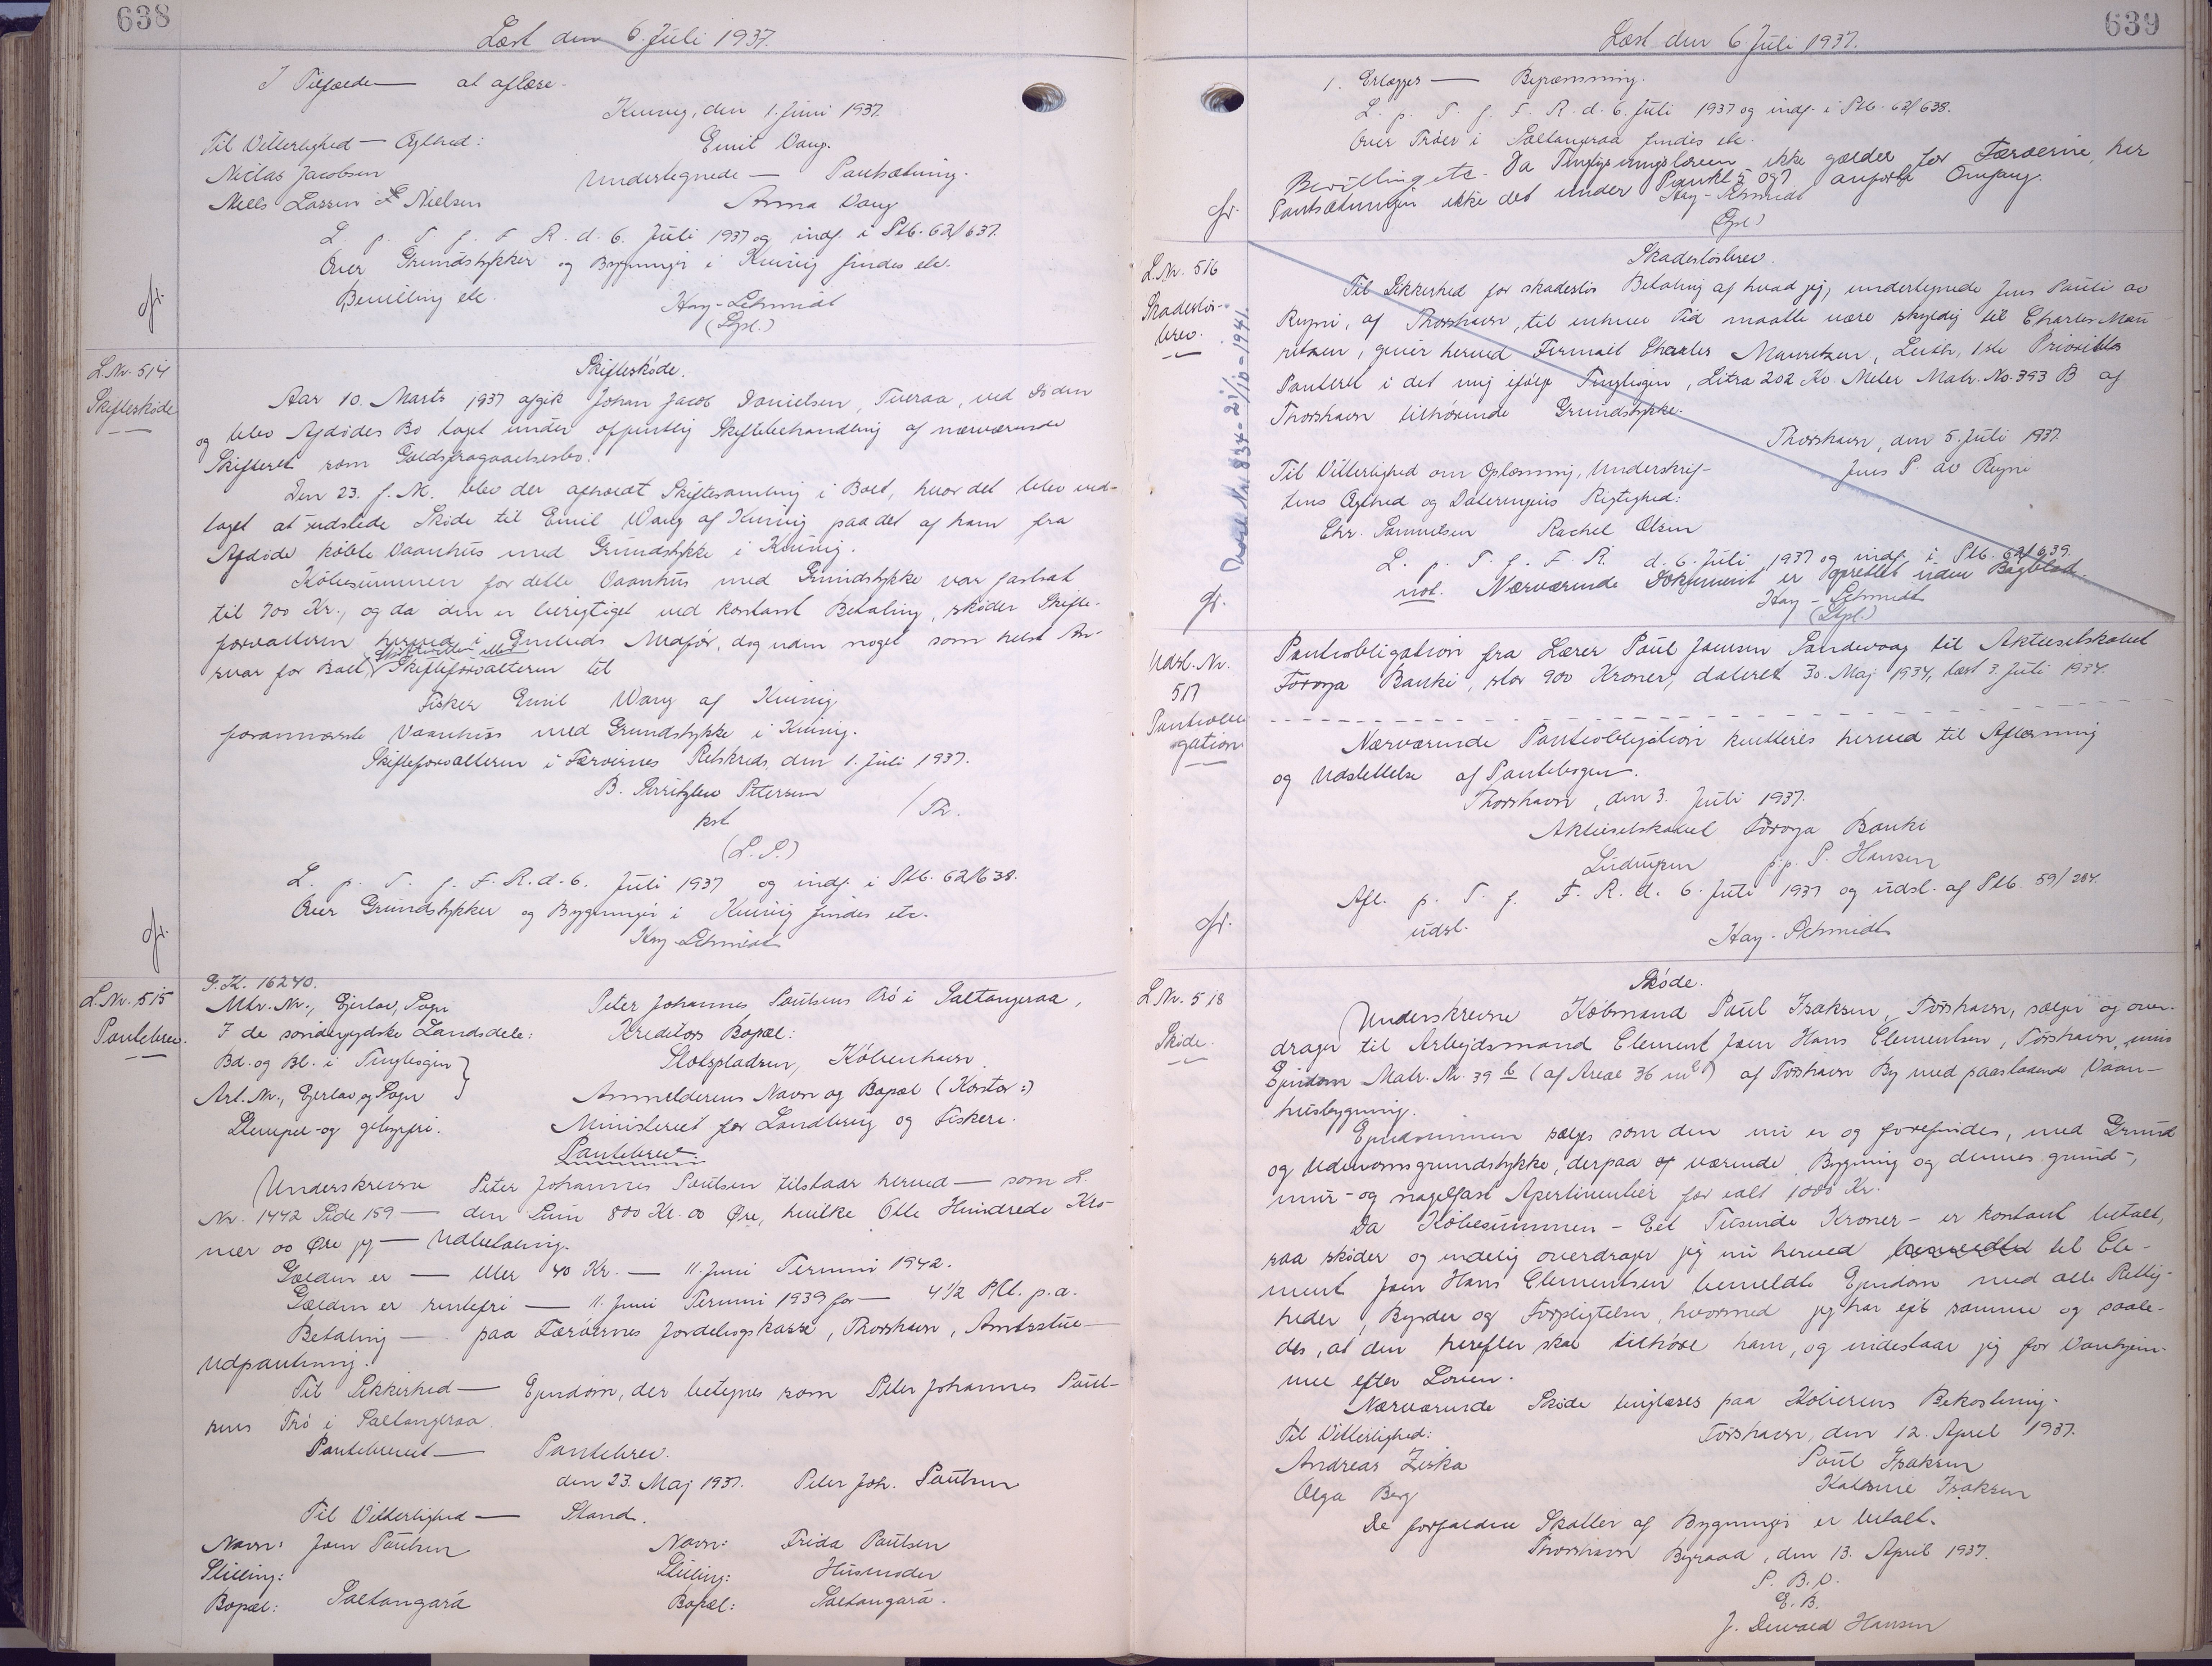 638
Læst den 6. Juli 1937.
I Tilfælde — at aflæse.
Kvivig, den 1. Juni 1937.
Til Vitterlighed — Ægthed:
Emil Vang.
Niclas Jacobsen
Undertegnede — Pantsætning.
Niels Nielsen
Anna Vang
L. p. T. f. F. R. d. 6. Juli 1937 og indf. i Ptb. 62/637.
Over Grundstykker og Bygninger i Kvivig findes etc.
Bevilling etc.
Kay-Schmidt
L.Nr. 514
Skifteskøde
Skifteskøde.
Aar 10. Marts 1937 afgik Johan Jacob Danielsen, Tveraa, ved Døden
og blev Afdødes Bo taget under offentlig Skiftebehandling af nærværende
Skifteret som Gældsfragaaelsesbo.
Den 23. f. M. blev der afholdt Skiftesamling i Boet, hvor det blev ved-
taget at udstede Skøde til Emil Wang af Kvivig paa det af ham fra
Afdøde købte Vaanhus med Grundstykke i Kvivig.
Købesummen for dette Vaanhus med Grundstykke var fastsat
til 700 Kr., og da den er berigtiget ved kontant Betaling, skøder Skifte-
forvalteren herved i Embeds Medfør, dog uden noget som helst An-
svar for Boet, Skifteretten eller Skifteforvalteren til
Fisker Emil Wang af Kvivig
forannævnte Vaanhus med Grundstykke i Kvivig.
Skifteforvalteren i Færøernes Retskreds, den 1. Juli 1937.
B. Petersen
kst
/ Th.
(L. S.)
L. p. T. f. F. R. d. 6. Juli 1937 og indf. i Ptb. 62/638.
Over Grundstykker og Bygninger i Kvivig findes etc.
Kay-Schmidt
L.Nr. 515
Pantebrev.
P.K. 16240.
Mtr. Nr., Ejerlav, Sogn
Peter Johannes Poulsens Trö i Saltangeraa.
I de sønderjydske Landsdele:
Kreditors Bopæl:
Bd. og Bl. i Tingbogen
Slotspladsen, København.
Art. Nr., Ejerlav og Sogn
Anmelderens Navn og Bopæl (Kontor:)
Stempel- og gebyrfri.
Ministeriet for Landbrug og Fiskeri.
Pantebrev.
Underskrevne Peter Johannes Poulsen tilstaar herved — som L.
Nr. 1442 Side 159 — den Sum 800 Kr. 00 Øre, hvilke Otte Hundrede Kro-
ner 00 Øre jeg — Udbetaling.
Gælden er — eller 40 Kr. — 11. Juni Termin 1942.
Gælden er rentefri — 11. Juni Termin 1939 for — 4 1/2 Pct. p.a.
Betaling — paa Færøernes Jordebogskasse, Thorshavn, Amtsstue —
Udpantning.
Til Sikkerhed — Ejendom, der betegnes som Peter Johannes Poul-
sens Trö i Saltangeraa.
Pantebrevet — Pantebrev.
den 23. Maj 1937. Peter Joh. Poulsen
Til Vitterlighed — Stand.
Navn: Joen Poulsen
Navn: Frida Poulsen
Stilling:
Stilling: Husmoder
Bopæl: Saltangará
Bopæl: Saltangará.
639
Læst den 6 Juli 1937.
1. Erlægges — Begrænsning.
L. p. T. f. F. R. d. 6. Juli 1937 og indf. i Ptb. 62/638.
Over Tröer i Saltangeraa findes etc.
Bevilling etc. Da Tinglysningsloven ikke gælder for Færøerne, har
Pantsætningen ikke det under Punkt 5 og 7 anførte Omfang.
Kay-Schmidt
L.Nr. 516
Skadesløs-
brev.
Skadesløsbrev.
Til Sikkerhed for skadesløs Betaling af hvad jeg, undertegnede Jens Pauli av
Rugni, af Thorshavn, til enhver Tid maatte være skyldig til Charles Mau-
ritzen, giver herved Firmaet Charles Mauritzen, Leith, 1ste Prioritets
Panteret i det mig ifølge Tingbogen, Litra 202 Kv. Meter Matr. No. 393 B af
Thorshavn tilhørende Grundstykke.
Thorshavn, den 5. Juli 1937.
Til Vitterlighed om Oplæsning, Underskrif-
Jens P. av Rugni
tens Ægthed og Dateringens Rigtighed:
Chr. Samuelsen Rachel Olsen
L. p. T. f. F. R. d. 6. Juli 1937 og indf. i Ptb. 62/639.
not. Nærværende Dokument er oprettet uden Bagblad.
Kay-Schmidt
Udsl. Nr. 834 - 21/10 - 1941.
Udsl. Nr.
517
Pantobli-
gation
Pantobligation fra Lærer Poul Jensen Sandevaag til Aktieselskabet
Föroya Banki, stor 900 Kroner, dateret 30. Maj 1934, læst 3. Juli 1934.
Nærværende Pantobligation kvitteres herved til Aflæsning
og Udslettelse af Pantebogen.
Thorshavn, den 3. Juli 1937.
Aktieselskabet Föroya Banki
p.p. P. Hansen
Afl. p. T. f. F. R. d. 6. Juli 1937 og udsl. af Ptb. 59/284.
udsl.
Kay-Schmidt
L.Nr. 518
Skøde.
Skøde.
Underskrevne Købmand Poul Isaksen, Tórshavn, sælger og over-
drager til Arbejdsmand Clement Joen Hans Clementsen, Tórshavn, min
Ejendom Matr. Nr. 39 b (af Areal 36 m²) af Tórshavn By med paastaaende Vaan-
husbygning.
Ejendommen sælges som den nu er og forefindes, med Grund
og Udenomsgrundstykke, derpaa værende Bygning og dennes grund-,
mur- og nagelfast Apertinentier for ialt 1000 Kr.
Da Købesummen - Eet Tusinde Kroner - er kontant betalt,
saa skøder og endelig overdrager jeg nu herved til Cle-
ment Joen Hans Clementsen bemeldte Ejendom med alle Rettig-
heder, Byrder og Forpligtelser, hvormed jeg har ejet samme og saale-
des, at den herefter skal tilhøre ham, og indestaar jeg for Vanhjem-
mel efter Loven.
Nærværende Skøde tinglæses paa Køberens Bekostning.
Til Vitterlighed:
Tórshavn, den 12. April 1937.
Andreas Ziska
Poul Isaksen
Olga Berg
Katrine Isaksen
De forfaldne Skatter af Bygninger er betalt.
Thorshavn Byraad, den 13. April 1937.
P. B. V.
E. B.
J. Dewald Hansen